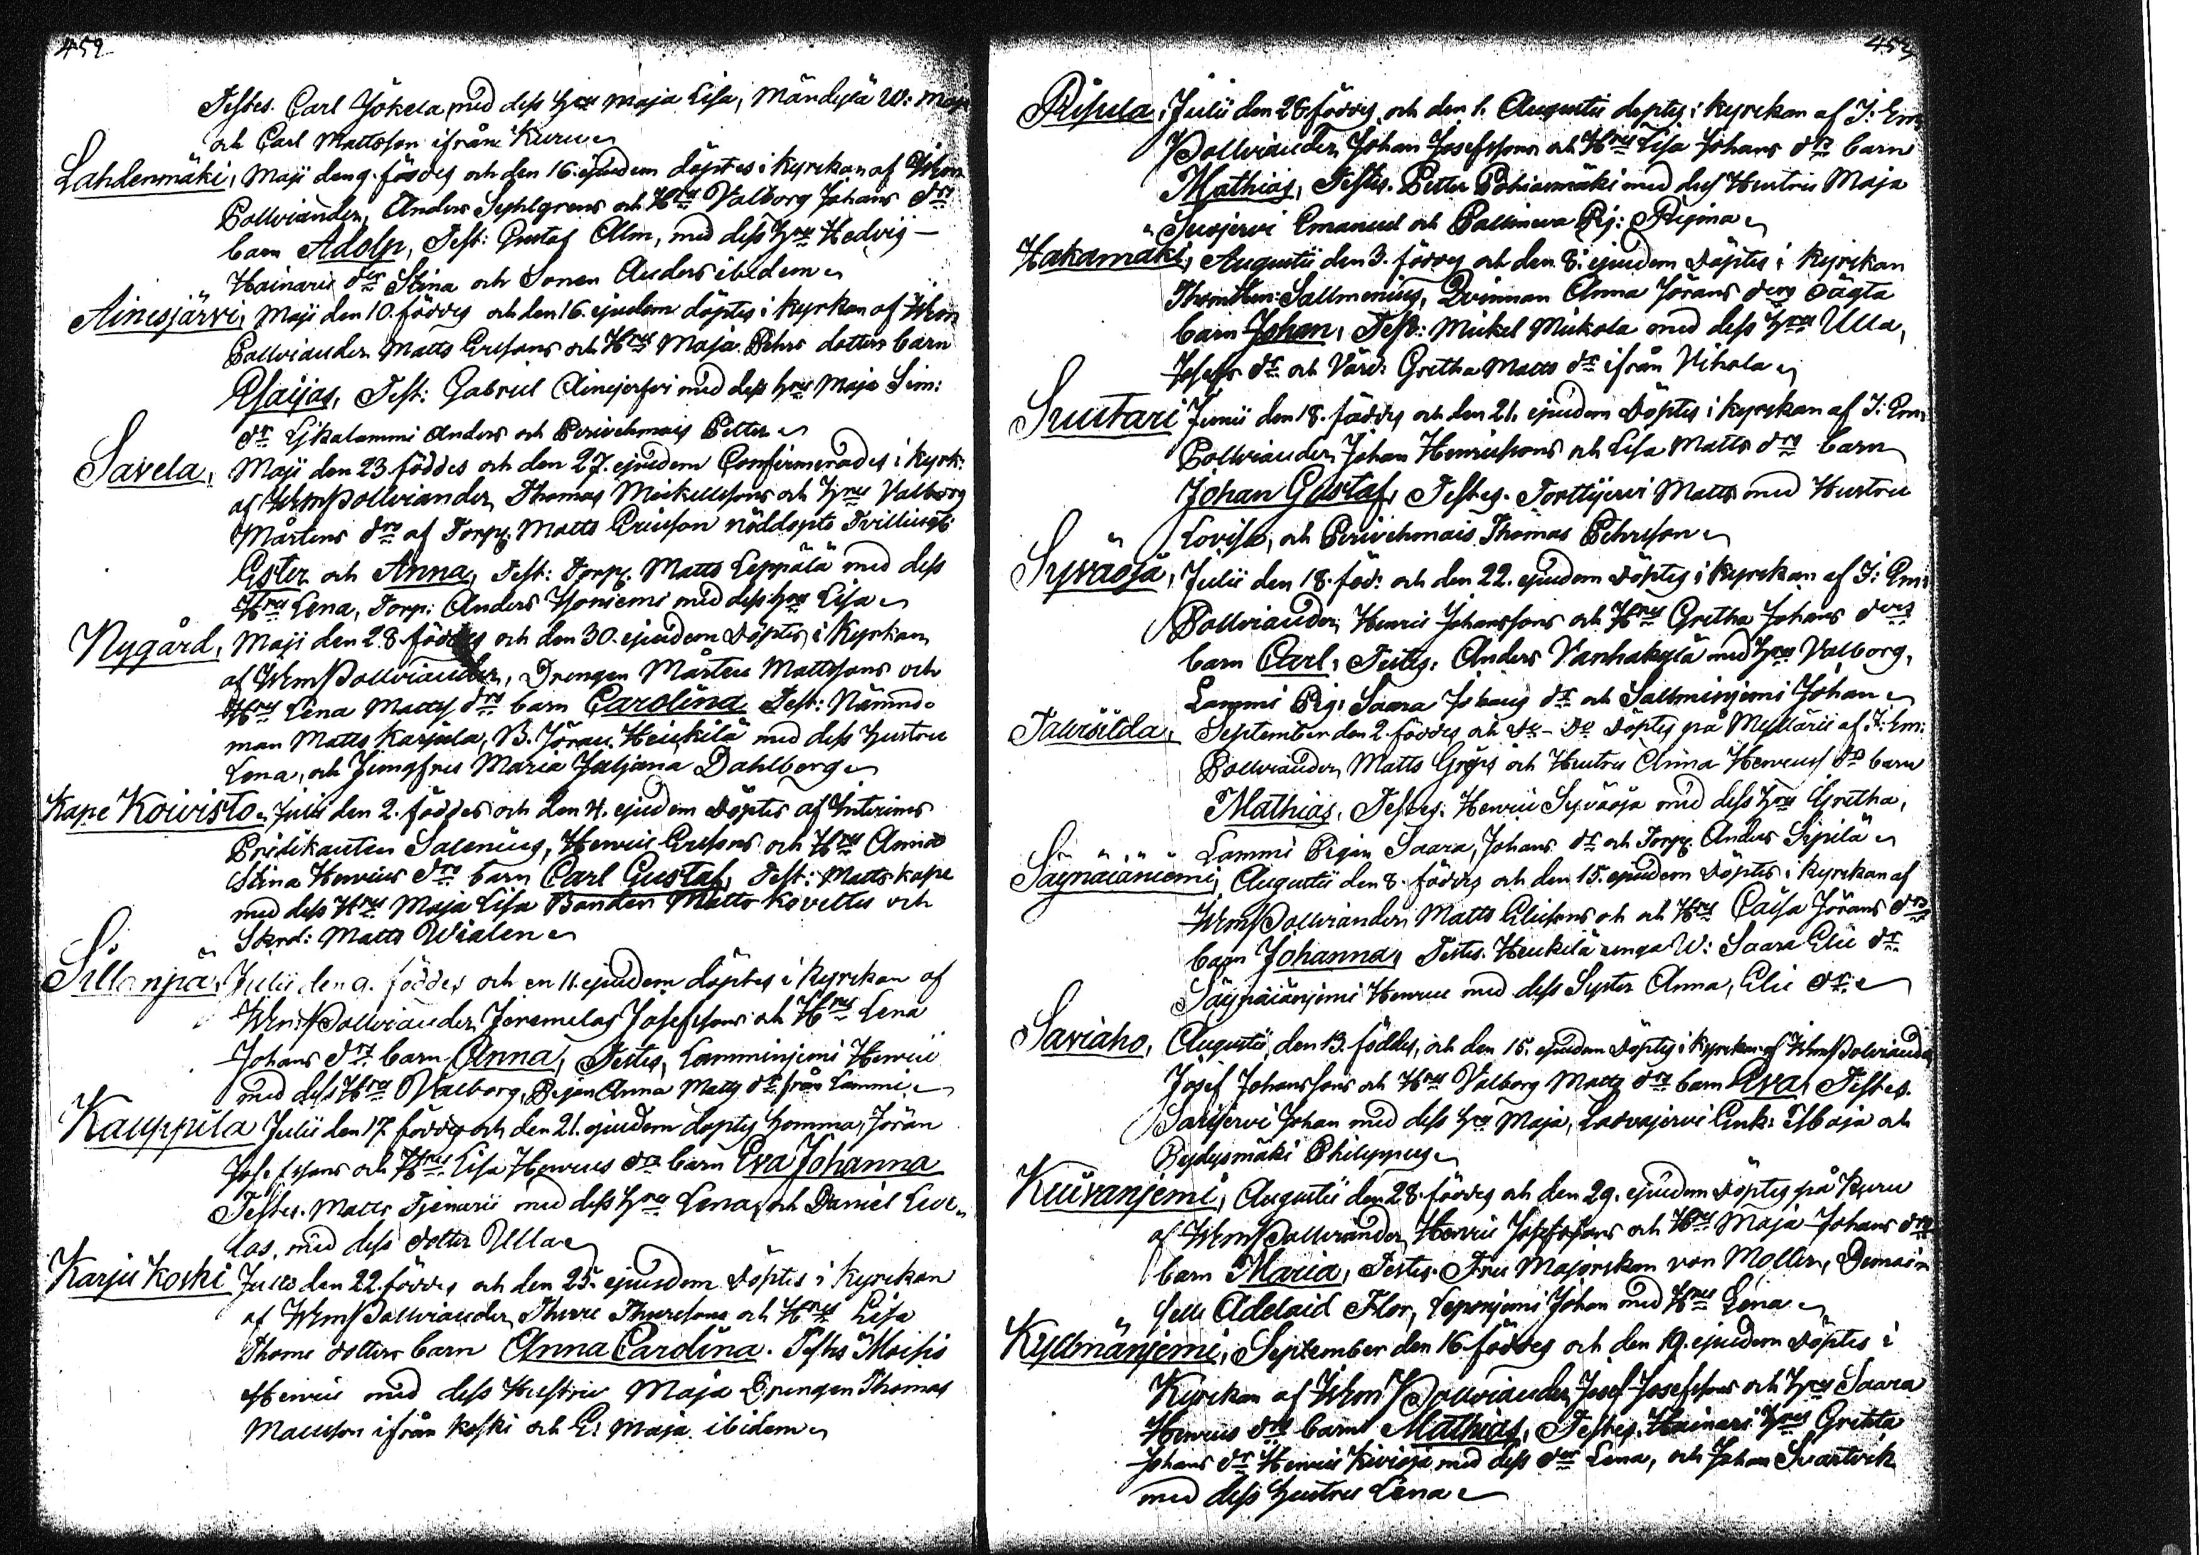 452
Testes. Carl Jökela, med dess Hru Maja Lisa, Mändylä W: Maja
och Carl Mattsson ifrån Kuru
Lahdenmäki, Maji den 9. föddes och den 16. ejusdem döptes i Kyrckan af
Pollviander, Anders Syhlgrens och Hrus Valborg Johans drs
barn Adolp, Test: Gustaf Alm, med dess Hru Hedvig
Hainaris dr Stina och Sonen Anders ibidem
Ainesjärvi, Maji den 10. föddes och den 16. ejusdem döptes i Kyrkan af
Pollviander Matts Ersons och Hrus Maja Pehrs dotters barn
Esaijas, Test: Gabriel Ainesjerfvi med dess Hru Maja Sim:
dr Lykalammi Anders och Petter
Savela, Maji den 23 föddes och den 27. ejusdem Confirmerades i Kyrk:
af Pollviander, Thomas Mickelssons och Hrus Valborg
Mårtens drs af Torp: Matts Ericsson nöddöpte Tvillingb:
Ester och Anna, Test: Torp: Matts Leppälä med dess
Hru Lena, Torp: Anders Honiemi med dess Hru Lisa
Nygård, Maji den 28. föddes och den 30. ejusdem döptes i Kyrkan
af Pollviander, Drengen Mårten Mattssons och
Hrus Lena Matts drs barn Carolina Test: Nämnd-
man Matts Karjula, B. Jöran Heickilä med dess Hustru
Lena, och Jungfru Maria Juljana Dahlberg
Kape Koivisto, Julii den 2. föddes och den 4. ejusdem döptes af Interims
Predikanten Salenius, Henric Ersons och Hrus Anna
Stina Henrics drs barn Carl Gustaf, Test: Matts Kape
med dess Hru Maja Lisa Bonden Matts Koveltus och
Skrd: Matts Wialen
Sillanpä, Julii den 9. föddes och en 11. ejusdem döptes i Kyrckan af
Pollviander, Jeremias Josefssons och Hrus Lena
Johans drs barn Anna, Testes, Lamminjemi Henric
med dess Hru Valborg, Pigan Anna Matts dr från Lammi
Kauppila Julii den 17. föddes och den 21. ejusdem döptes hemma, Jöran
Josefssons och Hrus Lisa Henrics drs barn Eva Johanna
Testes. Matts Tjenarii med dess Hru Lena, och Daniel
las, med dess dotter Ulla
Karju Koski Julii den 22. föddes och den 25. ejusdem döptes i Kyrckan
af Pollviander, Thure Thuresons och Hrus Lisa
Thome dotters barn Anna Carolina. Testes Moisio
Henric med dess Hustru Maja Drengen Thomas
Mattson ifrån Koski och E: Maja ibidem
453
Risula, Julii den 28 föddes och den 1. Augustii döptes i Kyrckan af I: Em:
Pollviander, Johan Josefssons och Hrus Lisa Johans drs barn
Mathias, Testes. Petter Pohiasmäki med dess Hustru Maja
Susjervi Emanuel och Pig: Regina
Hakamäki, Augustii den 3. föddes och den 8. ejusdem döptes i Kyrckan
Sallmenius, Qvinnan Anna Jörans ders oägta
barn Johan, Test: Mickel Mickola med dess Hru Ulla,
Josefs dr och Värd: Gretha Matts dr ifrån
Suutari Junii den 18. föddes och den 21. ejusdem döptes i Kyrckan af I: Em:
Pollviander, Johan Henricssons och Lisa Matts drs barn
Johan Gustaf, Testes. Torttijervi Matts med Hustru
Lovisa, och Thomas Pehrsson
Syväojä, Julii den 18. föd: och den 22. ejusdem döptes i Kyrckan af I: Em:
Pollviander, Henric Johanssons och Hrus Gretha Johans ders
barn Carl, Testes: Anders Vanhakylä med Hru Valborg,
Lammi Pig: Saara Johans dr och Sallminjemi Johan
September den 2. föddes och Do - Do döptes på af I: Em:
Pollviander, Matts och Hustru Anna Henrics drs barn
Mathias, Testes: Henric Syväoja med dess Hru Gretha,
Lammi Pigan Saara, Johans dr och Torp: Anders Sipilä
Säynäjäniemi, Augustii den 8. föddes och den 15. ejusdem döptes i Kyrckan af
Pollviander, Matts och Hrus Caisa Jörans drs
barn Johanna, Testes. Heickilä unga W: Saara Elie dr
Säynäiänjemi Henric med dess Syster Anna, Elie dr:
Saviaho, Augustii, den 13. föddes, och den 15. ejusdem döptes i Kyrckan af Pollviander
Josef Johanssons och Hrus Valborg Matts drs barn Eva, Testes.
Sarisjervi Johan med dess Hru Maja, Ladvajervi Enk: och
Philippus
Kuivanjemi, Augustii den 28. föddes och den 29. ejusdem döptes på Kuru
af Pollviander, Henric Josefssons och Hrus Maja Johans drs
barn Maria, Testes. Fru Majorskan von Moller, Demoi-
selle Adelaid Flor, Leponjemi Johan med Hru Lena
Kyllmänjemi, September den 16 föddes och den 19. ejusdem döptes i
Kyrckan af Pollviander, Josef Josefssons och Hrus Saara
Henrics drs barn Mathias, Testes. Hainari Hrus Gretta
Johans dr Henric Kivioja med dess dr Lena, och Johan Svartvik
med dess hustru Lena